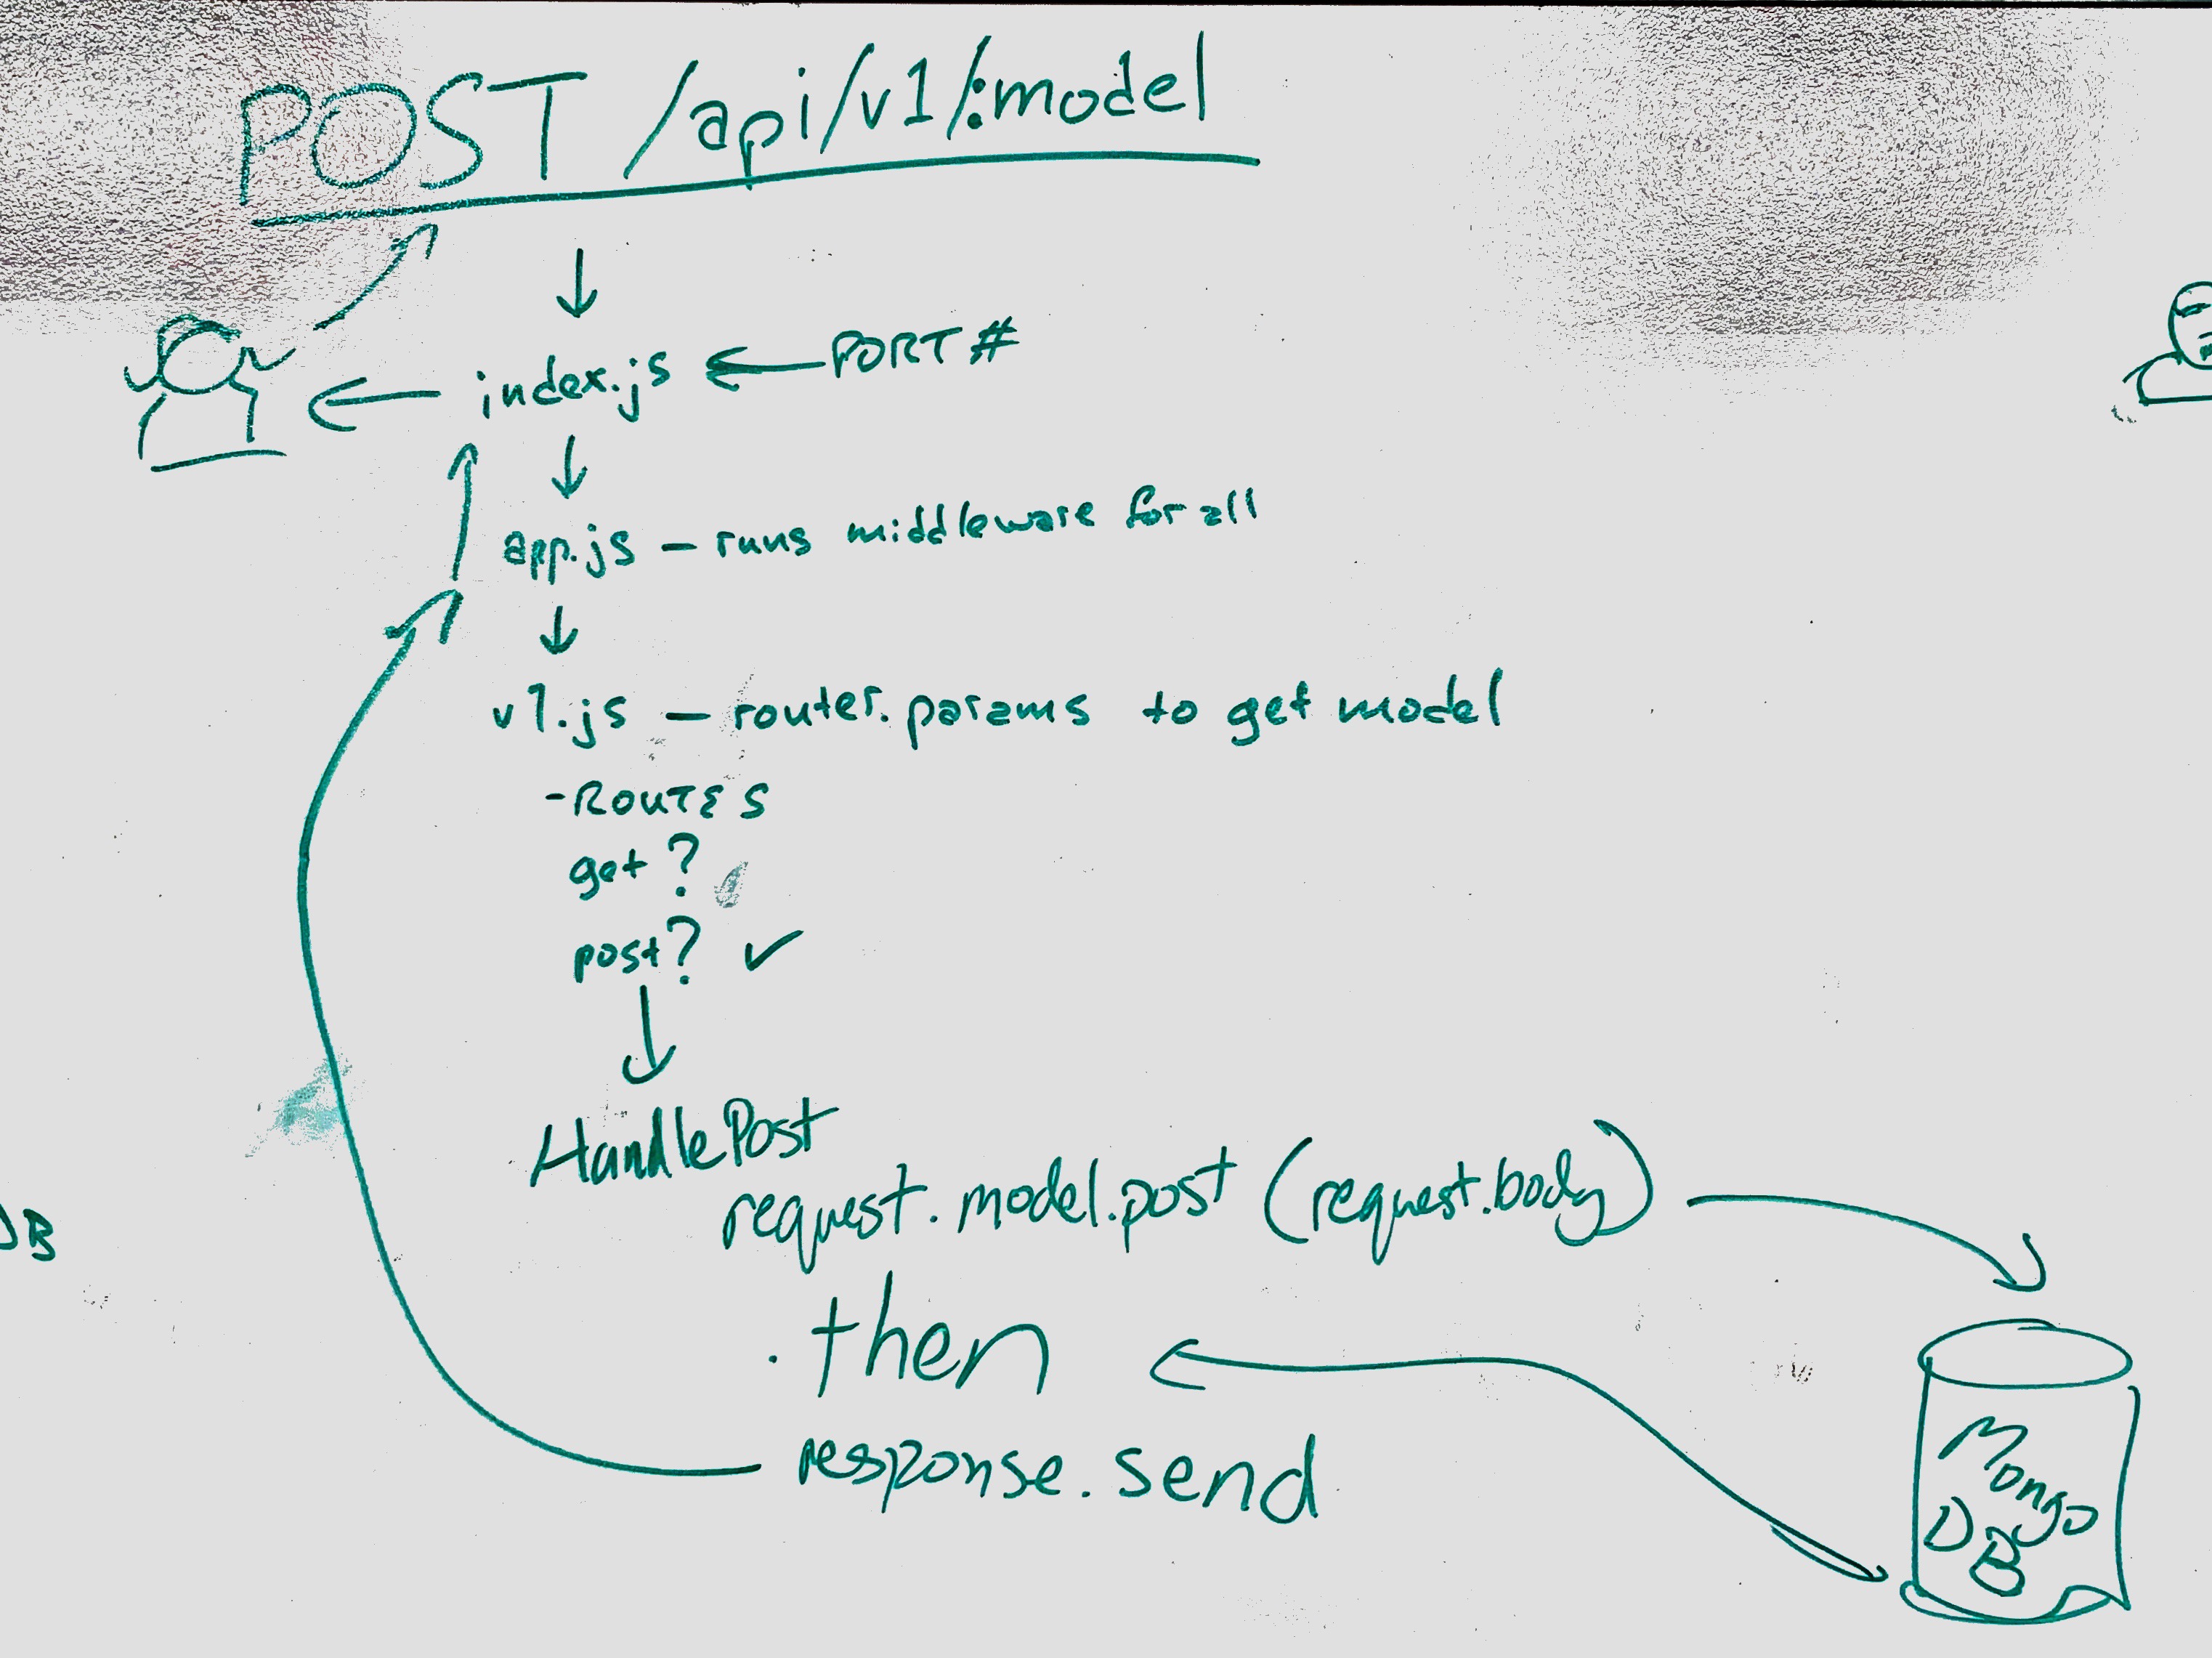 POST /api/v1/:model
index.js
PORT #
app.js – runs middleware for all
v1.js – router.params to get model
-ROUTES
get?
post? ✓
HandlePost
request.model.post (request.body)
.then
response.send
Mongo
DB